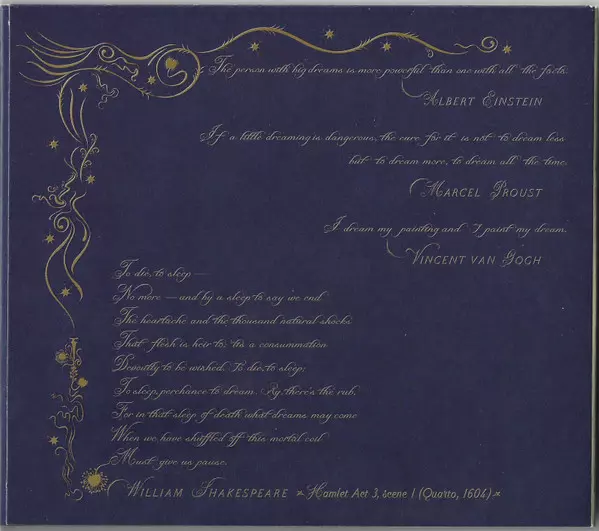 The person with big dreams is more powerful than one with all the facts.
Albert Einstein
If a little dreaming is dangerous, the cure for it is not to dream less
but to dream more, to dream all the time.
Marcel Proust
I dream my painting and I paint my dream.
Vincent van Gogh
To die, to sleep —
No more — and by a sleep to say we end
The heartache and the thousand natural shocks
That flesh is heir to: 'tis a consummation
Devoutly to be wished. To die, to sleep;
To sleep, perchance to dream. Ay, there's the rub,
For in that sleep of death what dreams may come
When we have shuffled off this mortal coil
Must give us pause.
William Shakespeare * Hamlet Act 3, scene 1 (Quarto, 1604) *